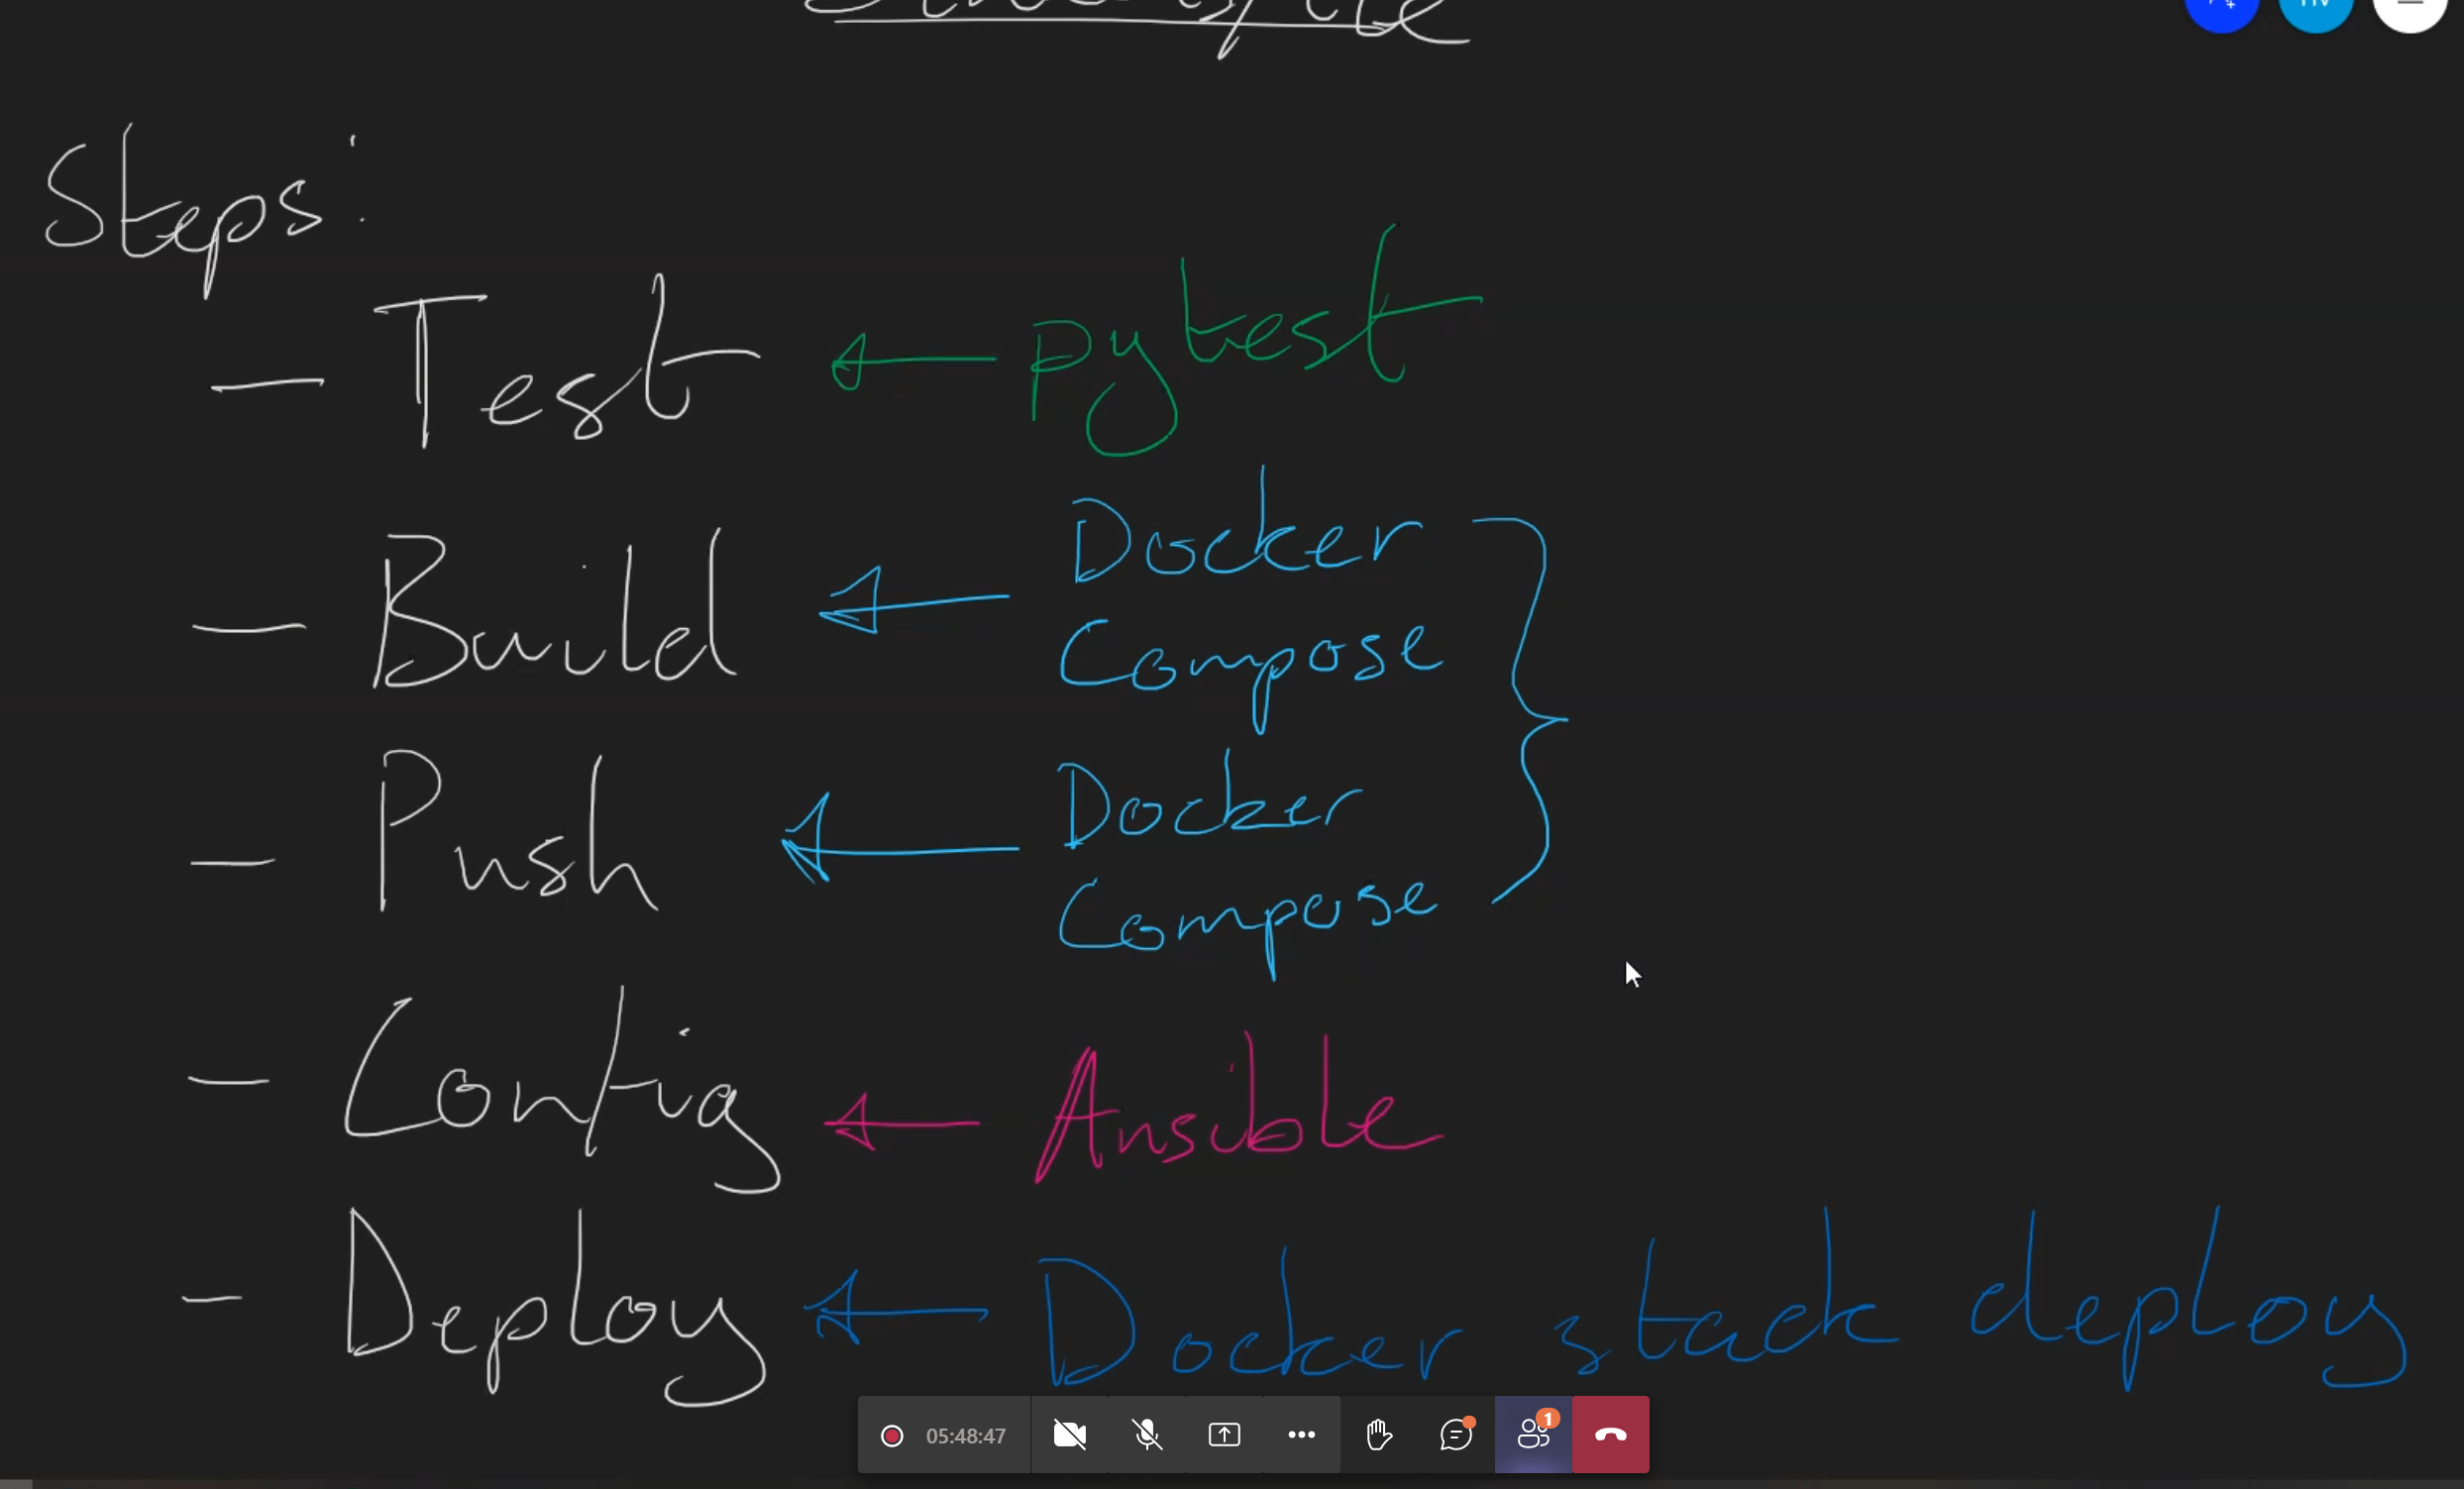 Steps:
- Test ← Pytest
- Build ← Docker
Compose
- Push ← Docker
Compose
- Config ← Ansible
- Deploy ← Docker stack deploy
05:48:47
1